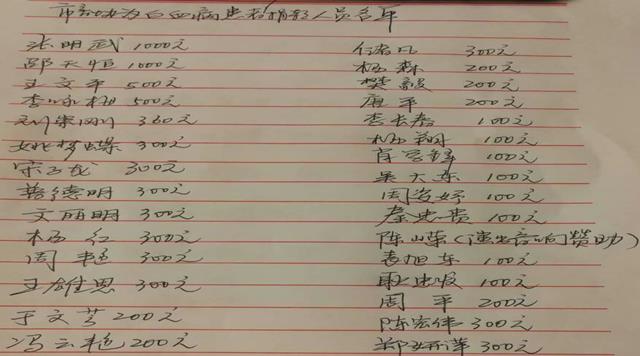 为白血病患者捐款人员名单
张明武 1000元
邵天恒 1000元
王文平 500元
李 500元
刘荣刚 300元
姚梦蝶 300元
宋 300元
德明 300元
文丽明 300元
杨红 300元
周艳 300元
王雄恩 300元
于文芝 200元
冯云艳 200元
付 300元
杨森 200元
樊毅 200元
唐平 200元
李长春 100元
杨翔 100元
100元
吴大东 100元
周姿妤 100元
秦忠贵 100元
陈山荣(演出音响赞助)
袁旭东 100元
100元
周平 200元
陈宏伟 300元
郑 萍 300元